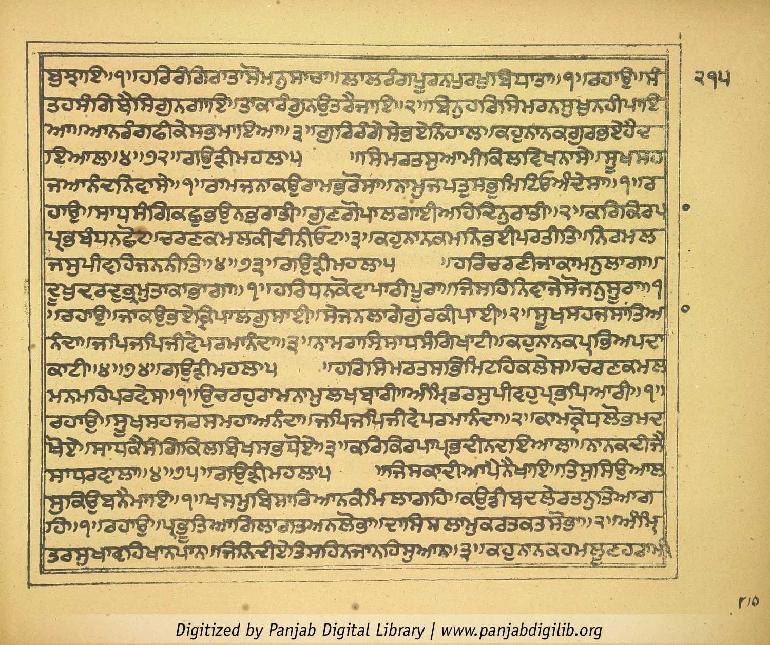 ਬੁਝਾਇ॥੧॥ਹਰਿਰੰਗਿਰਾਤਾਸੋਮਨੁਸਾਚਾ॥ਲਾਲਰੰਗਪੂਰਨਪੁਰਖੁਬਿਧਾਤਾ॥੧॥ਰਹਾਉ॥ਸੰ
ਤਹਸੰਗਿਬੈਸਿਗੁਨਗਾਇ॥ਤਾਕਾਰੰਗੁਨਉਤਰੈਜਾਇ॥੨॥ਬਿਨੁਹਰਿਸਿਮਰਨਸੁਖੁਨਹੀਪਾਇ
ਆ॥ਆਨਰੰਗਫੀਕੇਸਭਮਾਇਆ॥੩॥ਗੁਰਿਰੰਗੇਸੇਭਏਨਿਹਾਲ॥ਕਹੁਨਾਨਕਗੁਰਭਏਹੈਦ
ਇਆਲ॥੪॥੭੨॥ਗਉੜੀਮਹਲਾ੫ ॥ਸਿਮਰਤਸੁਆਮੀਕਿਲਵਿਖਨਾਸੇ॥ਸੂਖਸਹ
ਜਆਨੰਦਨਿਵਾਸੇ॥੧॥ਰਾਮਜਨਾਕਉਰਾਮਭਰੋਸਾ॥ਨਾਮੁਜਪਤਸਭੁਮਿਟਿਓਅੰਦੇਸਾ॥੧॥ਰ
ਹਾਉ॥ਸਾਧਸੰਗਿਕਛੁਭਉਨਭਰਾਤੀ॥ਗੁਣਗੋਪਾਲਗਾਈਅਹਿਦਿਨੁਰਾਤੀ॥੨॥ਕਰਿਕਿਰਪਾ
ਪ੍ਰਭਬੰਧਨਛੋਟ॥ਚਰਣਕਮਲਕੀਦੀਨੀਓਟ॥੩॥ਕਹੁਨਾਨਕਮਨਿਭਈਪਰਤੀਤਿ॥ਨਿਰਮਲ
ਜਸੁਪੀਵਹਿਜਨਨੀਤਿ॥੪॥੭੩॥ਗਉੜੀਮਹਲਾ੫ ॥ਹਰਿਚਰਣੀਜਾਕਾਮਨੁਲਾਗਾ॥
ਦੂਖੁਦਰਦੁਭ੍ਰਮੁਤਾਕਾਭਾਗਾ॥੧॥ਹਰਿਧਨਕੋਵਾਪਾਰੀਪੂਰਾ॥ਜਿਸਹਿਨਿਵਾਜੇਸੋਜਨੁਸੂਰਾ॥੧
॥ਰਹਾਉ॥ਜਾਕਉਭਏਕ੍ਰਿਪਾਲਗੁਸਾਈ॥ਸੇਜਨਲਾਗੇਗੁਰਕੀਪਾਈ॥੨॥ਸੂਖਸਹਜਸਾਂਤਿਆ
ਨੰਦਾ॥ਜਪਿਜਪਿਜੀਵੇਪਰਮਾਨੰਦਾ॥੩॥ਨਾਮਰਾਸਿਸਾਧਸੰਗਿਖਾਟੀ॥ਕਹੁਨਾਨਕਪ੍ਰਭਿਅਪਦਾ
ਕਾਟੀ॥੪॥੭੪॥ਗਉੜੀਮਹਲਾ੫ ॥ਹਰਿਸਿਮਰਤਸਭਿਮਿਟਹਿਕਲੇਸ॥ਚਰਣਕਮਲ
ਮਨਮਹਿਪਰਵੇਸ॥੧॥ਉਚਰਹੁਰਾਮਨਾਮੁਲਖਬਾਰੀ॥ਅੰਮ੍ਰਿਤਰਸੁਪੀਵਹੁਪ੍ਰਭਪਿਆਰੀ॥੧॥
ਰਹਾਉ॥ਸੂਖਸਹਜਰਸਮਹਾਅਨੰਦਾ॥ਜਪਿਜਪਿਜੀਵੇਪਰਮਾਨੰਦਾ॥੨॥ਕਾਮਕ੍ਰੋਧਲੋਭਮਦ
ਖੋਏ॥ਸਾਧਕੈਸੰਗਿਕਿਲਬਿਖਸਭਧੋਏ॥੩॥ਕਰਿਕਿਰਪਾਪ੍ਰਭਦੀਨਦਇਆਲਾ॥ਨਾਨਕਦੀਜੈ
ਸਾਧਰਵਾਲਾ॥੪॥੭੫॥ਗਉੜੀਮਹਲਾ੫ ॥ਜਿਸਕਾਦੀਆਪੈਨੈਖਾਇ॥ਤਿਸੁਸਿਉਆਲ
ਸੁਕਿਉਬਨੈਮਾਇ॥੧॥ਖਸਮੁਬਿਸਾਰਿਆਨਕੰਮਿਲਾਗਹਿ॥ਕਉਡੀਬਦਲੇਰਤਨੁਤਿਆਗ
ਹਿ॥੧॥ਰਹਾਉ॥ਪ੍ਰਭੂਤਿਆਗਿਲਾਗਤਅਨਲੋਭਾ॥ਦਾਸਿਸਲਾਮੁਕਰਤਕਤਸੋਭਾ॥੨॥ਅੰਮ੍ਰਿ
ਤਰਸੁਖਾਵਹਿਖਾਨਪਾਨ॥ਜਿਨਿਦੀਏਤਿਸਹਿਨਜਾਨਹਿਸੁਆਨ॥੩॥ਕਹੁਨਾਨਕਹਮਲੂਣਹਰਾਮੀ
੨੧੫
Digitized by Panjab Digital Library | www.panjabdigilib.org